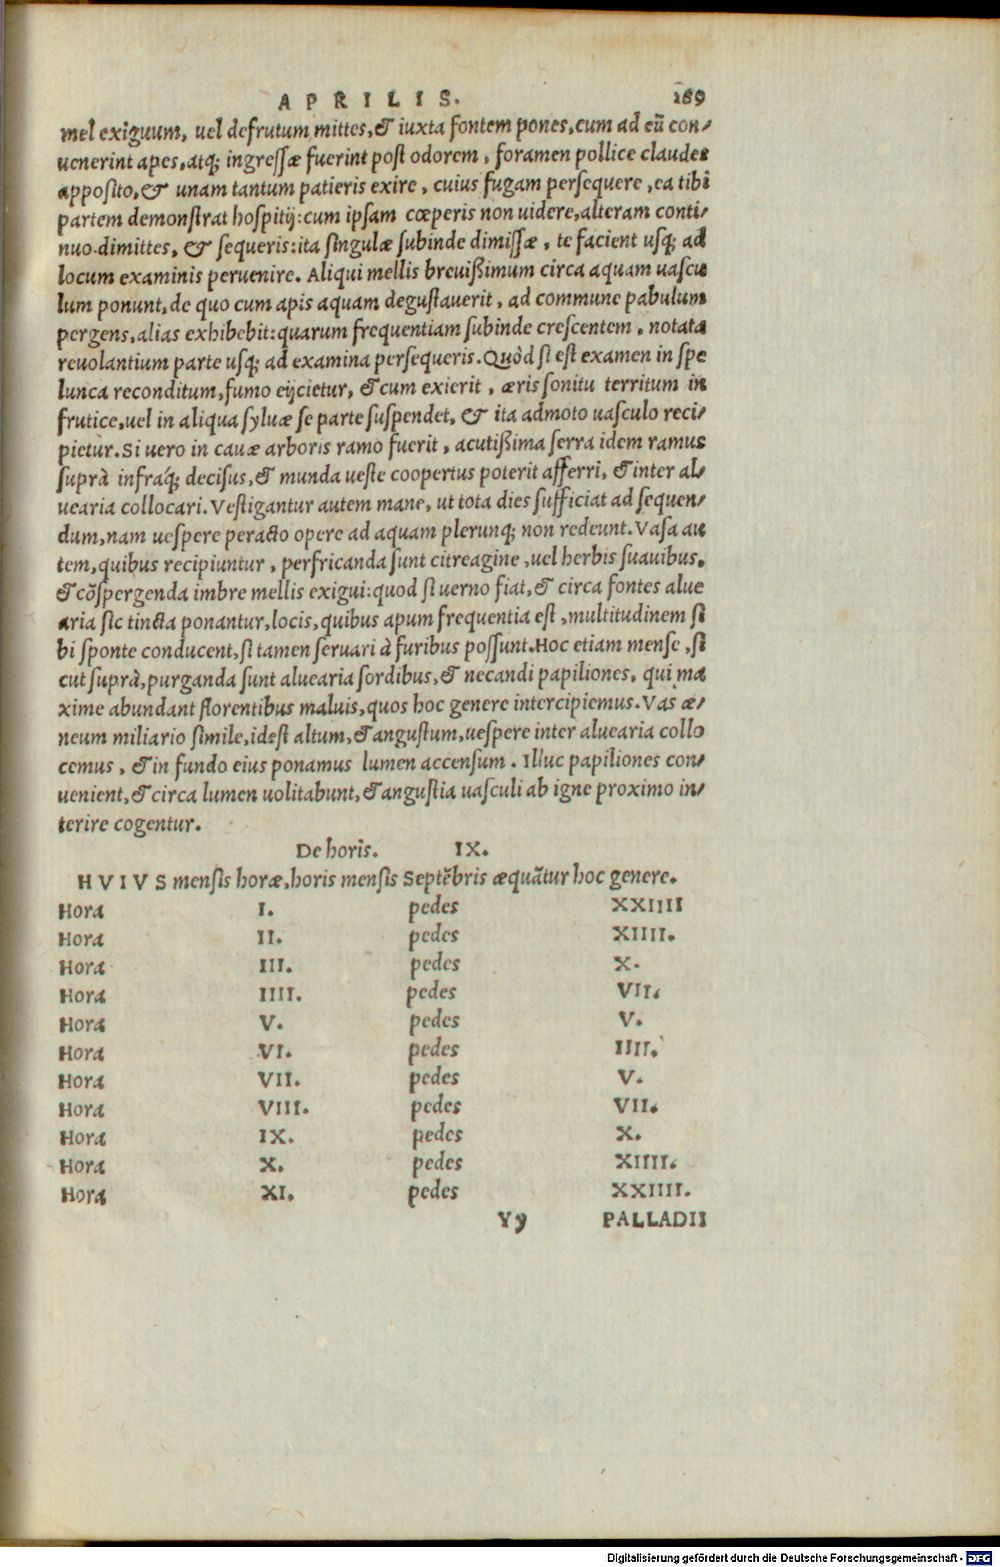 APRILIS. 169
mel exiguum, uel defrutum mittes, & iuxta fontem pones, cum ad eũ con/
uenerint apes, atq; ingressæ fuerint post odorem, foramen pollice claudes
apposito, & unam tantum patieris exire, cuius fugam persequere, ea tibi
partem demonstrat hospitij: cum ipsam cœperis non uidere, alteram conti/
nuo dimittes, & sequeris: ita singulæ subinde dimissæ, te facient usq; ad
locum examinis peruenire. Aliqui mellis breuißimum circa aquam uascu
lum ponunt, de quo cum apis aquam degustauerit, ad commune pabulum
pergens, alias exhibebit: quarum frequentiam subinde crescentem, notata
reuolantium parte usq; ad examina persequeris. Quòd si est examen in spe
lunca reconditum, fumo eijcietur, & cum exierit, æris sonitu territum in
frutice, uel in aliqua syluæ se parte suspendet, & ita admoto uasculo reci/
pietur. Si uero in cauæ arboris ramo fuerit, acutißima serra idem ramus
suprà infraq́; decisus, & munda ueste coopertus poterit afferri, & inter al/
uearia collocari. Vestigantur autem mane, ut tota dies sufficiat ad sequen/
dum, nam uespere peracto opere ad aquam plerunq; non redeunt. Vasa au
tem, quibus recipiuntur, perfricanda sunt citreagine, uel herbis suauibus,
& cõspergenda imbre mellis exigui: quod si uerno fiat, & circa fontes alue
aria sic tincta ponantur, locis, quibus apum frequentia est, multitudinem si
bi sponte conducent, si tamen seruari à furibus possunt. Hoc etiam mense, si
cut suprà, purganda sunt aluearia sordibus, & necandi papiliones, qui ma
xime abundant florentibus maluis, quos hoc genere intercipiemus. Vas æ/
neum miliario simile, idest altum, & angustum, uespere inter aluearia collo
cemus, & in fundo eius ponamus lumen accensum. Illuc papiliones con/
uenient, & circa lumen uolitabunt, & angustia uasculi ab igne proximo in/
terire cogentur.
De horis. IX.
HVIVS mensis horæ, horis mensis Septẽbris æquãtur hoc genere.
Hora I. pedes XXIIII
Hora II. pedes XIIII.
Hora III. pedes X.
Hora IIII. pedes VII.
Hora V. pedes V.
Hora VI. pedes IIII.
Hora VII. pedes V.
Hora VIII. pedes VII.
Hora IX. pedes X.
Hora X. pedes XIIII.
Hora XI. pedes XXIIII.
Yy PALLADII
Digitalisierung gefördert durch die Deutsche Forschungsgemeinschaft - DFG